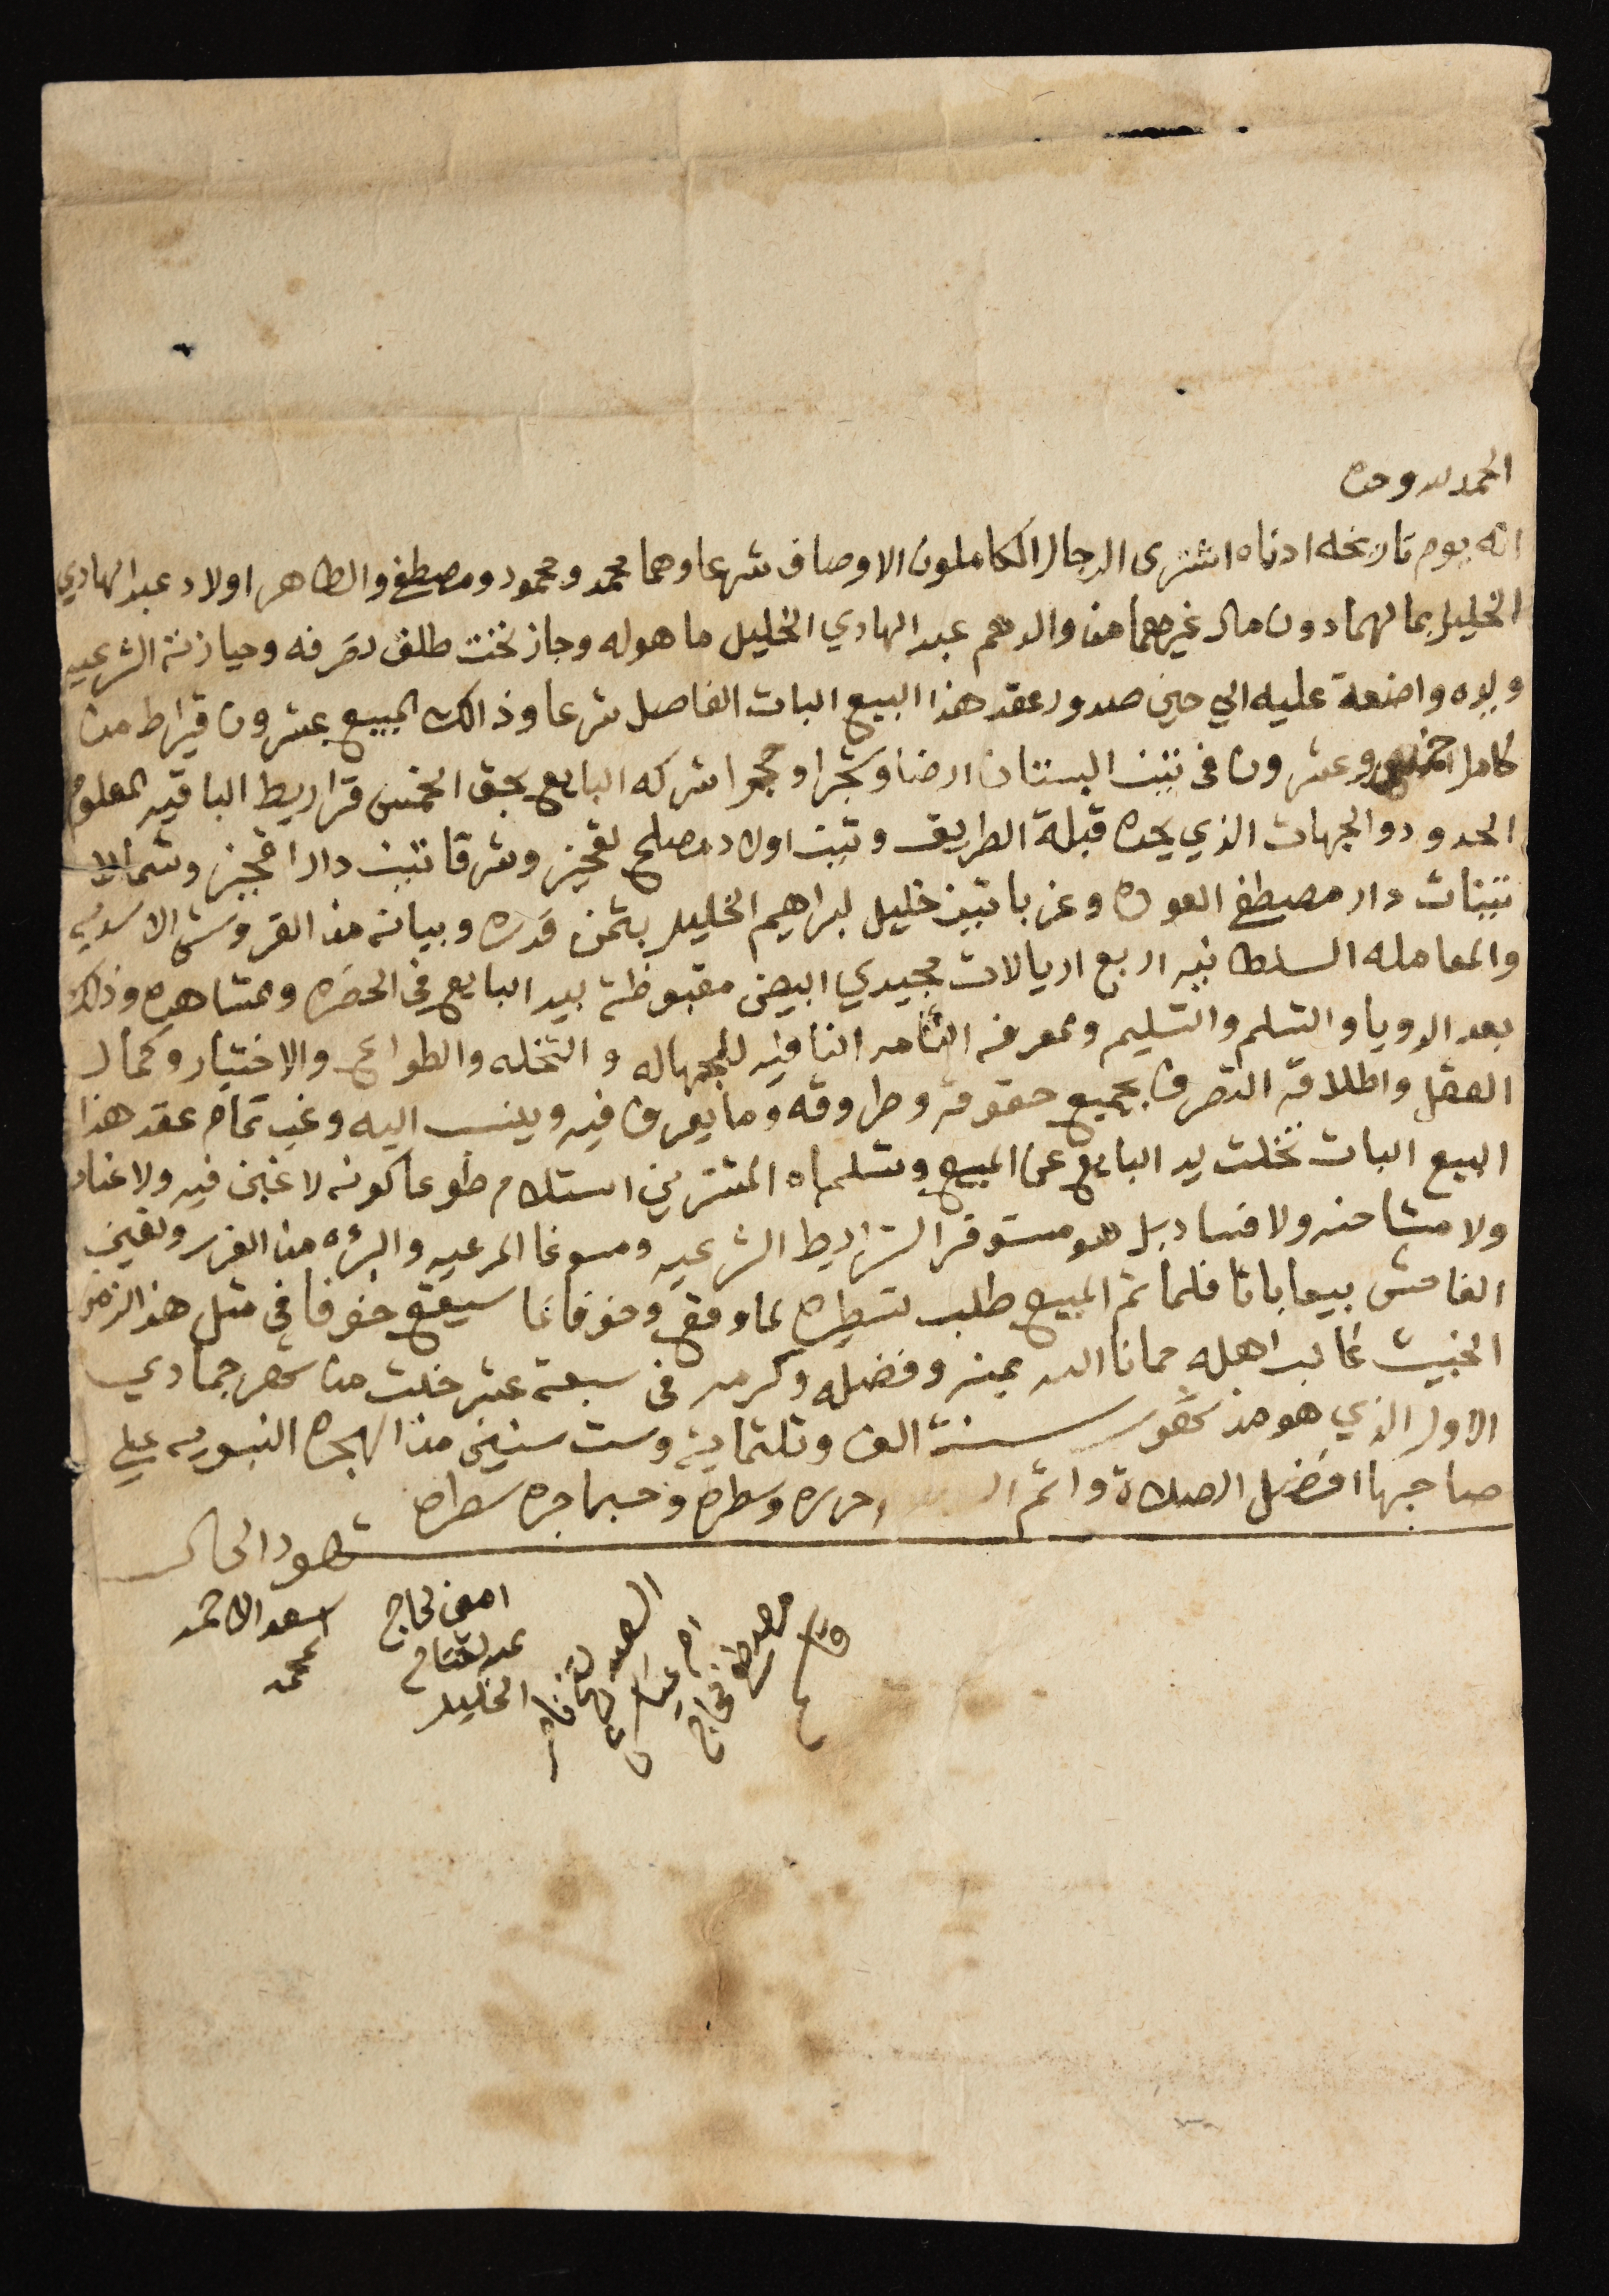 الحمد لله وحده
انه يوم تاريخه ادناه اشترى الرجال الكاملون الاوصاف شرعا وهما محمد ومحمود ومصطفى والطاهر اولاد عبد الهادي
الخليل بمالهما دون مال غيرهما من والدهم عبد الهادي الخليل ما هو له وجاز تحت طلق تصرفه وحيازته الشرعيه
ويده واضعة عليه الي حين صدور عقد هذا البيع البات الفاصل شرعا وذالك المبيع عشرون قيراط من
كامل وعشرون في تبن البستان ارضا وشجرا وحجرا شركه البايع بحق الخمس قراريط الباقيه المعلوم
الحدود والجهات الذي يحده قبلة الطريق وتبن اولاد مصلح وشرقا تبن دار وشمالا
تبنات دار مصطفى العوده وغربا تبن خليل ابراهيم الخليل بثمن قدره وبيانه من القروش الاسديه
والمعامله السلطانيه اربع اريالات مجيدي ابيض مقبوظة بيد البايع في الحضره والمشاهده وذالك
بعد الرويا والتسلم والتسليم والمعرفه التامه النافيه للجهاله و التخله والطواعي والاختيار وكمال
العقل واطلاقه التصرف بجميع حقوقه وطروقه وما يعرف فيه وينسب اليه وغب تمام عقد هذا
البيع البات تخلت يد البايع عن المبيع وتسلماه المشترين استلام طوعا كونه لا غبن فيه ولا عناد
ولا مشاحنه ولا فساد بل هو مستوفر الشرايط الشرعيه ومسوغا المرعيه والبرؤه من الغرر والغبن
الفاحش بيعا باتا فلما تم المبيع طلب تسطيره لما وقع وخوفا عما سيقع خوفا في مثل هذا الزمن
الخبيث غالب اهله حمانا الله بمنه وفضله وكرمه في سبعة عشر خلت من شهر جمادي
الاول الذي هو من شهور سنة الف وثلثماية وست سنين من الهجره النبويه علي
صاحبها افضل الصلاة واتم حرره وسطره وحسبما جره سطراه
شهود الحال
اسعد الاحمد
محمد
امين لحاج
عبد الفتاح
الخليل
السعيد
مصطفى لحاج